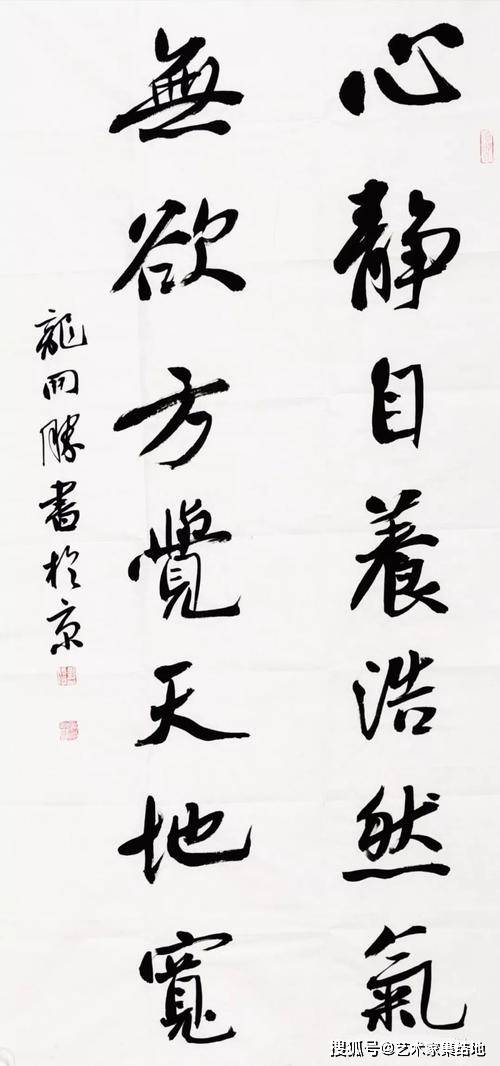 心静自養浩然氣
無欲方覺天地寬
龍開勝書於京
搜狐号@艺术家集结地